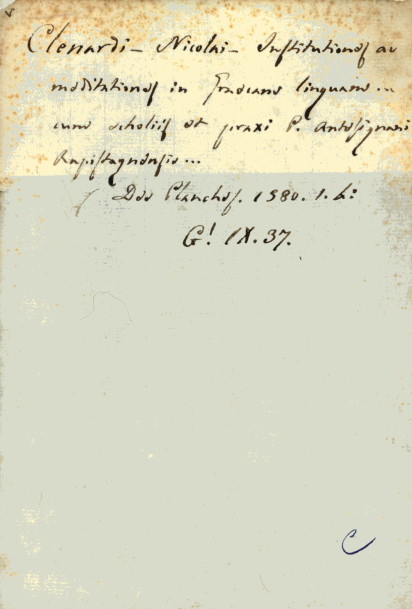 Clenardi - Nicolai - Institutiones ac
meditationes in Graecam linguam...
cum scholiis et praxi P. Antesignani
Rapistagnensis...
1580. 1. h:
G! IX. 37.
C